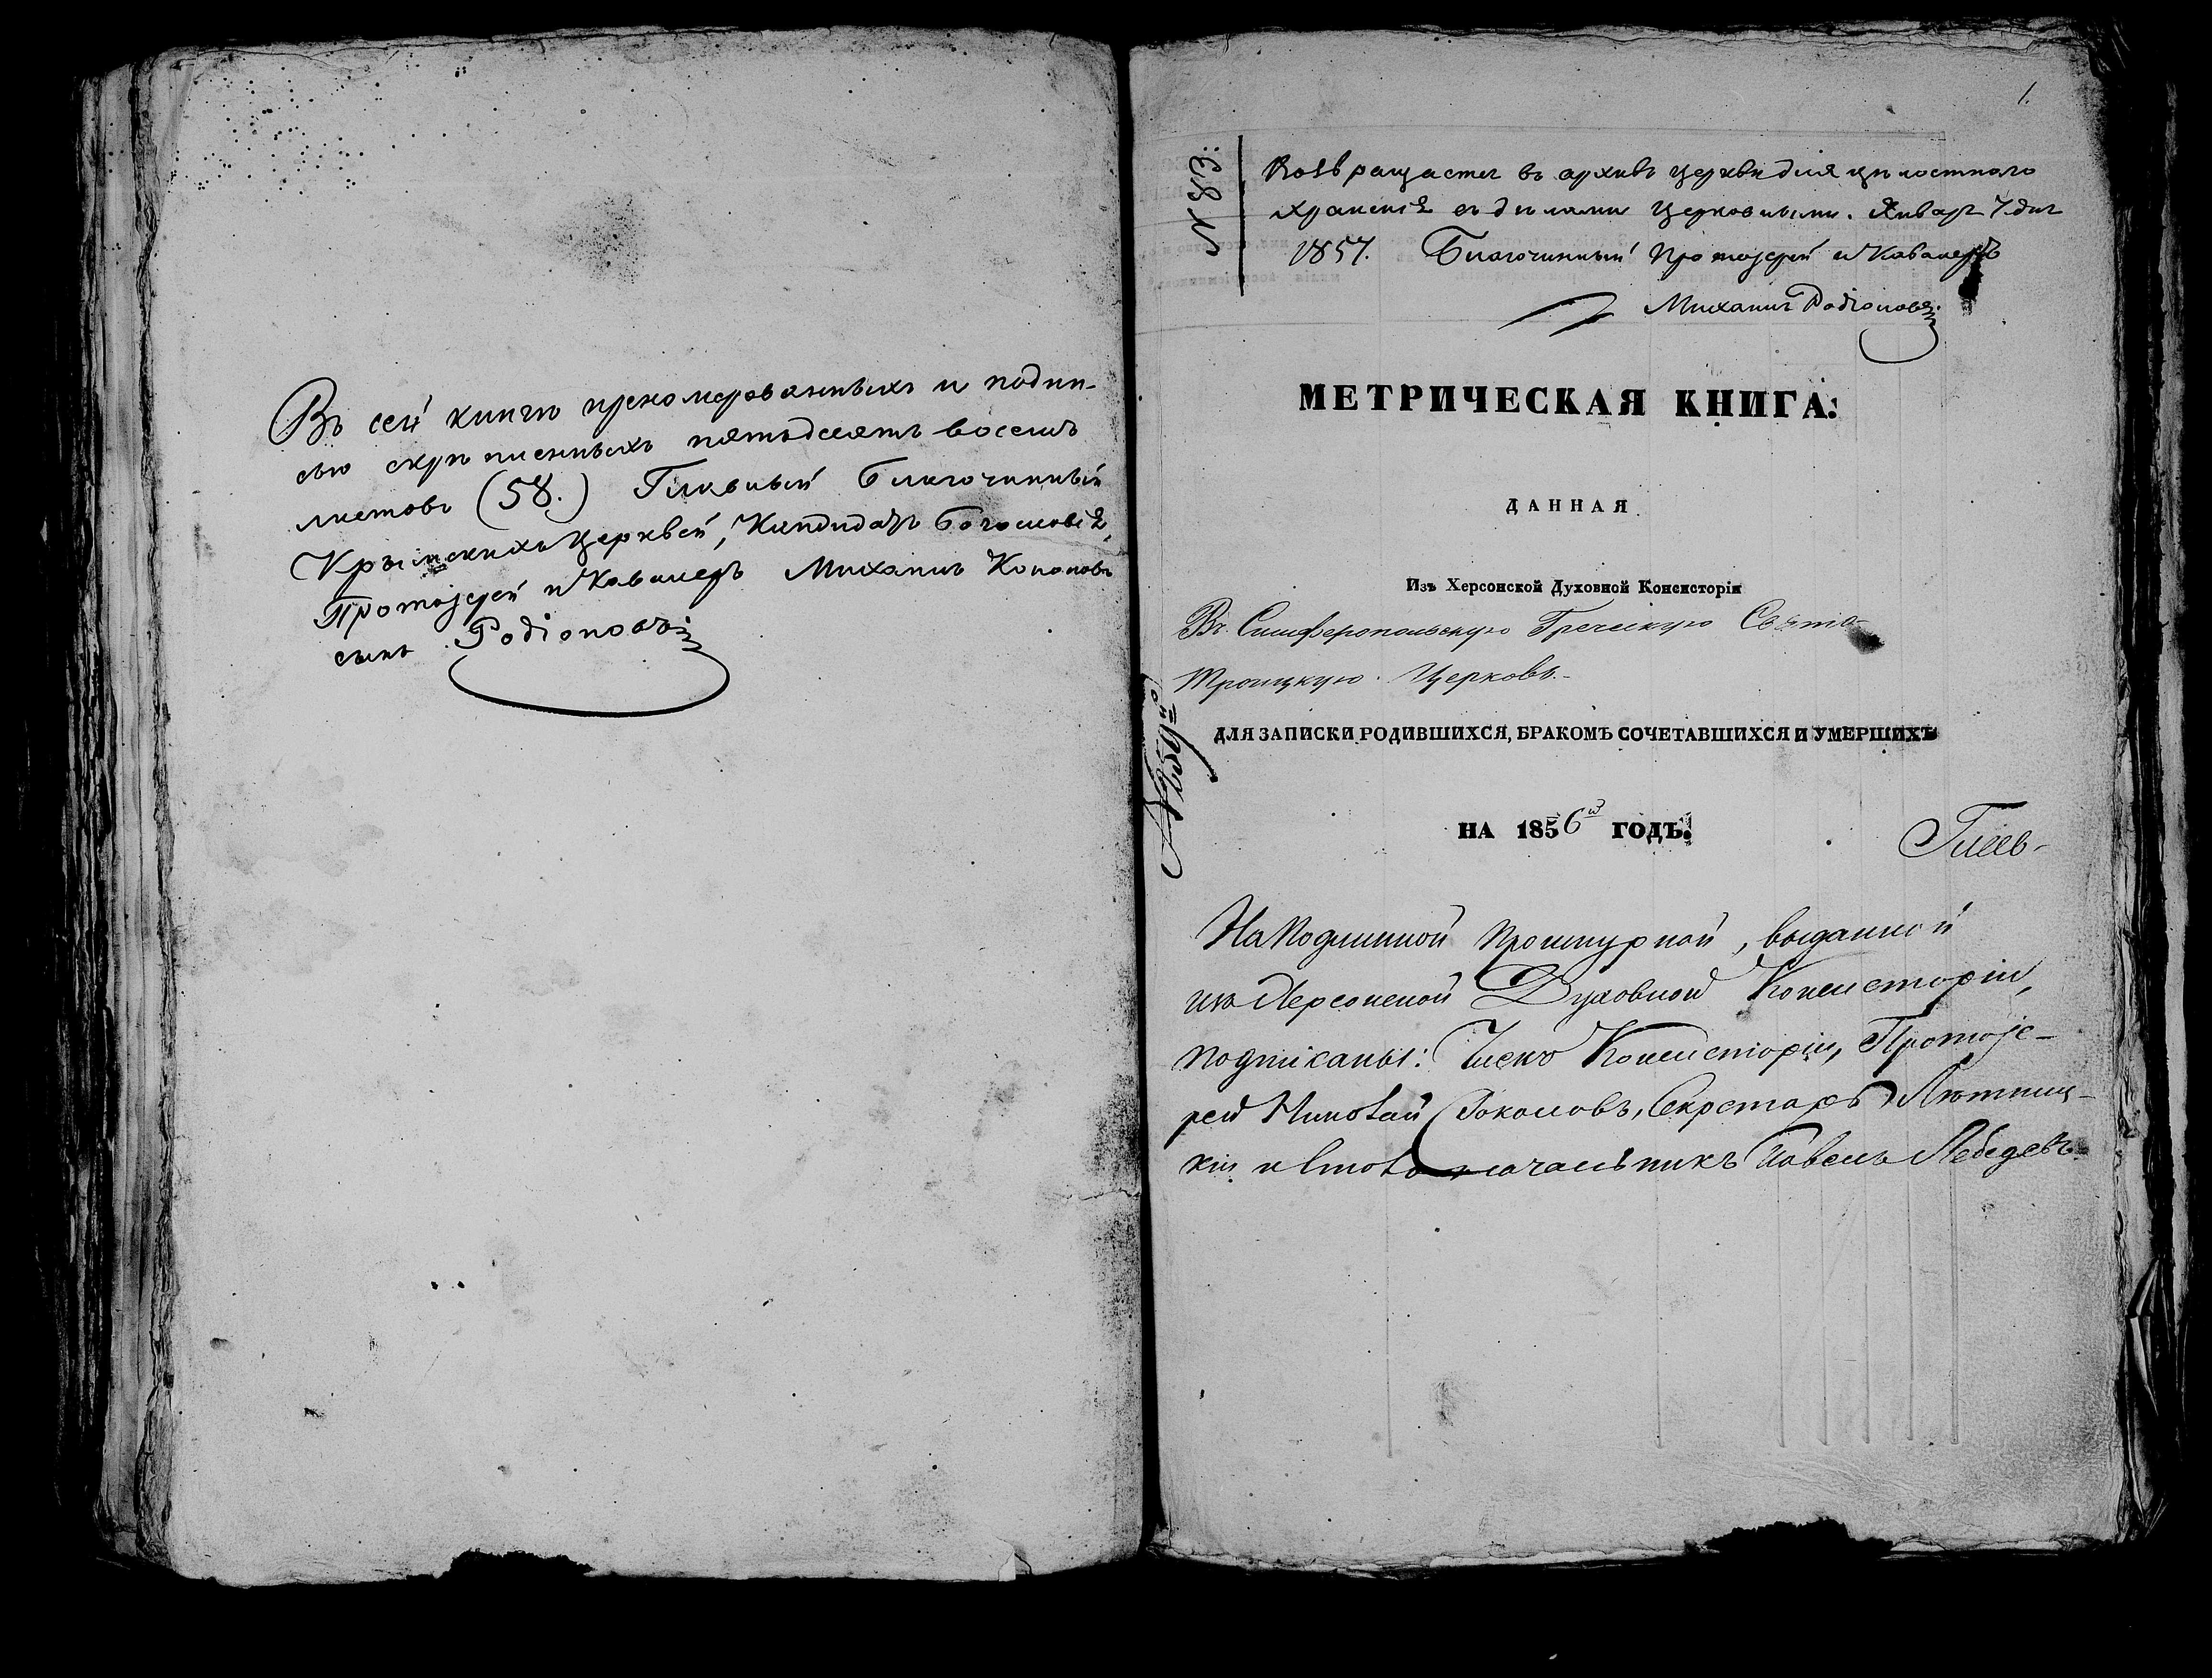 Въ сей книгѣ преномерованныхъ и подпи-
сью скрѣпленныхъ пятьдесятъ восемь
листовъ (58.) Главный Благочинный
Крымскихъ Церквей, Кандидатъ Богословія,
Протоіерей и Кавалеръ Михаилъ Кононовъ
сынъ Родіоновъ
1.
№ 83:
Возвращается въ архивъ церкви для цѣлостнаго
храненія съ дѣлами церковными. Январь 7 дня
1857. Благочинный Протоіерей и Кавалеръ
Михаилъ Родіоновъ
МЕТРИЧЕСКАЯ КНИГА:
ДАННАЯ
Изъ Херсонской Духовной Консисторіи
Въ Симферопольскую Греческую Свято-
Троицкую Церковь.-
ДЛЯ ЗАПИСКИ РОДИВШИХСЯ, БРАКОМЪ СОЧЕТАВШИХСЯ И УМЕРШИХЪ
НА 1856й ГОДЪ.
На Подлинной Прошнурной, выданной
изъ Херсонской Духовной Консисторіи,
подписаны: Членъ Консисторіи, Протоіе-
рей Николай Соколовъ, Секретарь
кій и Столоначальникъ Павелъ Лебедевъ.